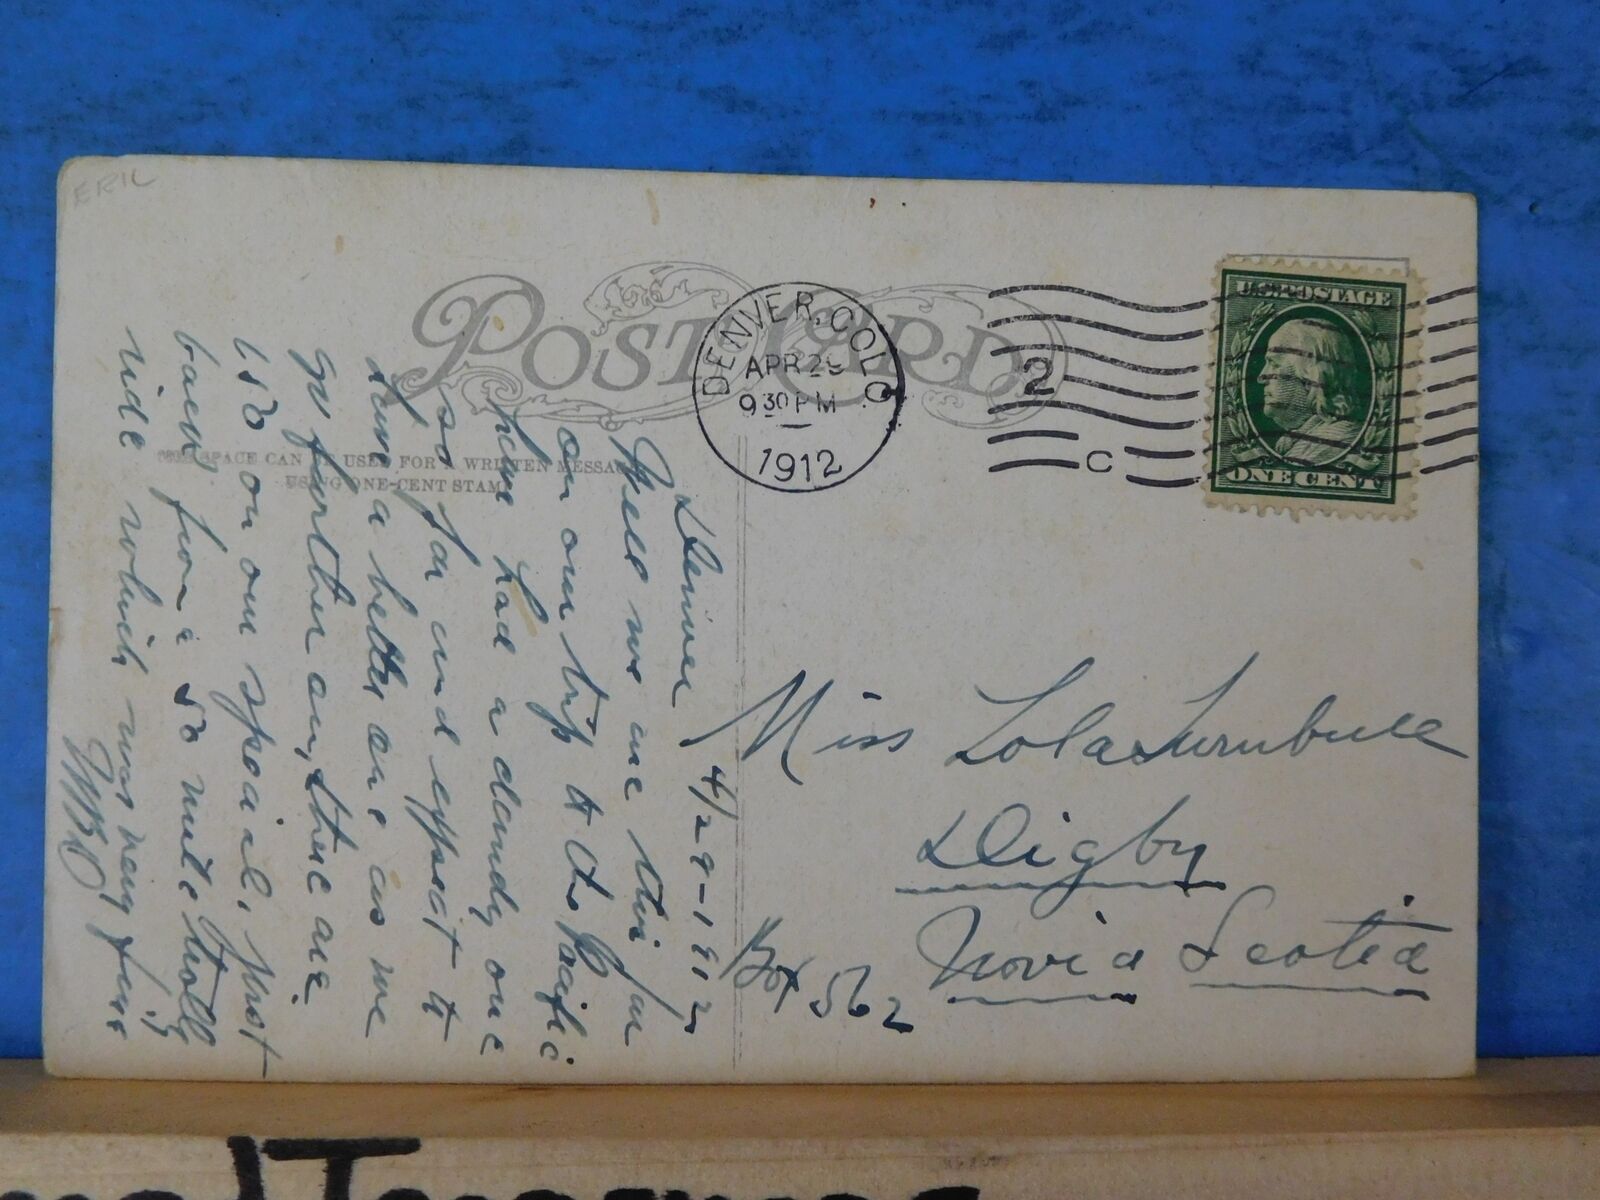 ERIL
POST CARD
DENVER, COLO
APR 29
9 30 PM
1912
2
C
U.S. POSTAGE
ONE CENT
THIS SPACE CAN BE USED FOR A WRITTEN MESSAGE
USING ONE-CENT STAMP
Denver 4/29-1912
Well we are this far
on our trip to the Pacific
have had a dandy one
so far and expect to
have a better one as we
go further on, there are
150 on our special, just
back from a 50 mile trolly
ride which was very fine
Miss Lola Turnbull
Digby
Novia Scotia
Box 562